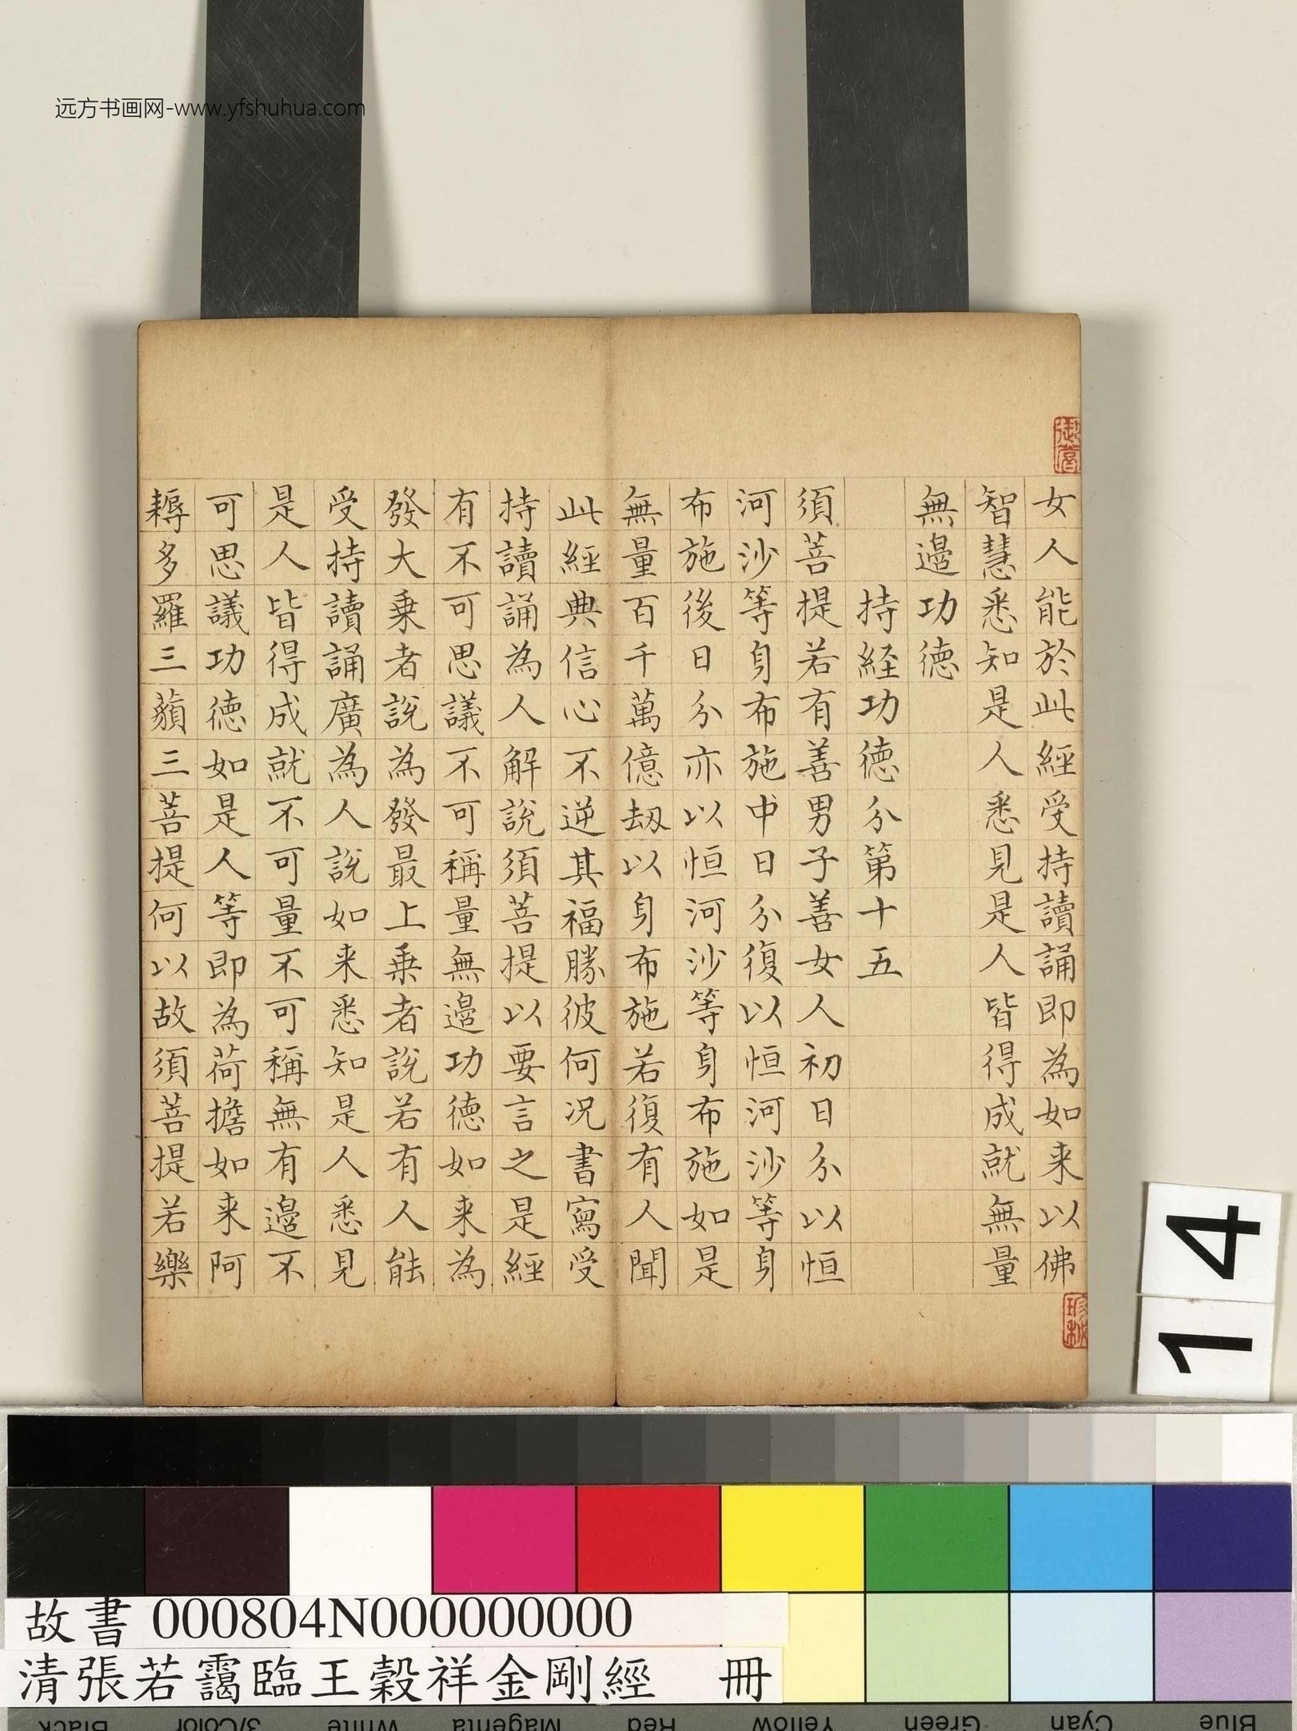 远方书画网-www.yfshuhua.com
女人能於此經受持讀誦即為如来以佛
智慧悉知是人悉見是人皆得成就無量
無邊功德
持経功徳分第十五
須菩提若有善男子善女人初日分以恒
河沙等身布施中日分復以恒河沙等身
布施後日分亦以恒河沙等身布施如是
無量百千萬億劫以身布施若復有人聞
此經典信心不逆其福勝彼何况書寫受
持讀誦為人解説須菩提以要言之是經
有不可思議不可稱量無邊功徳如来為
發大乗者説為發最上乗者説若有人能
受持讀誦廣為人説如来悉知是人悉見
是人皆得成就不可量不可稱無有邊不
可思議功徳如是人等即為荷擔如来阿
耨多羅三藐三菩提何以故須菩提若樂
14
故書 000804N000000000
清張若靄臨王穀祥金剛經 冊
Black 3/Color White Magenta Red Yellow Green Cyan Blue